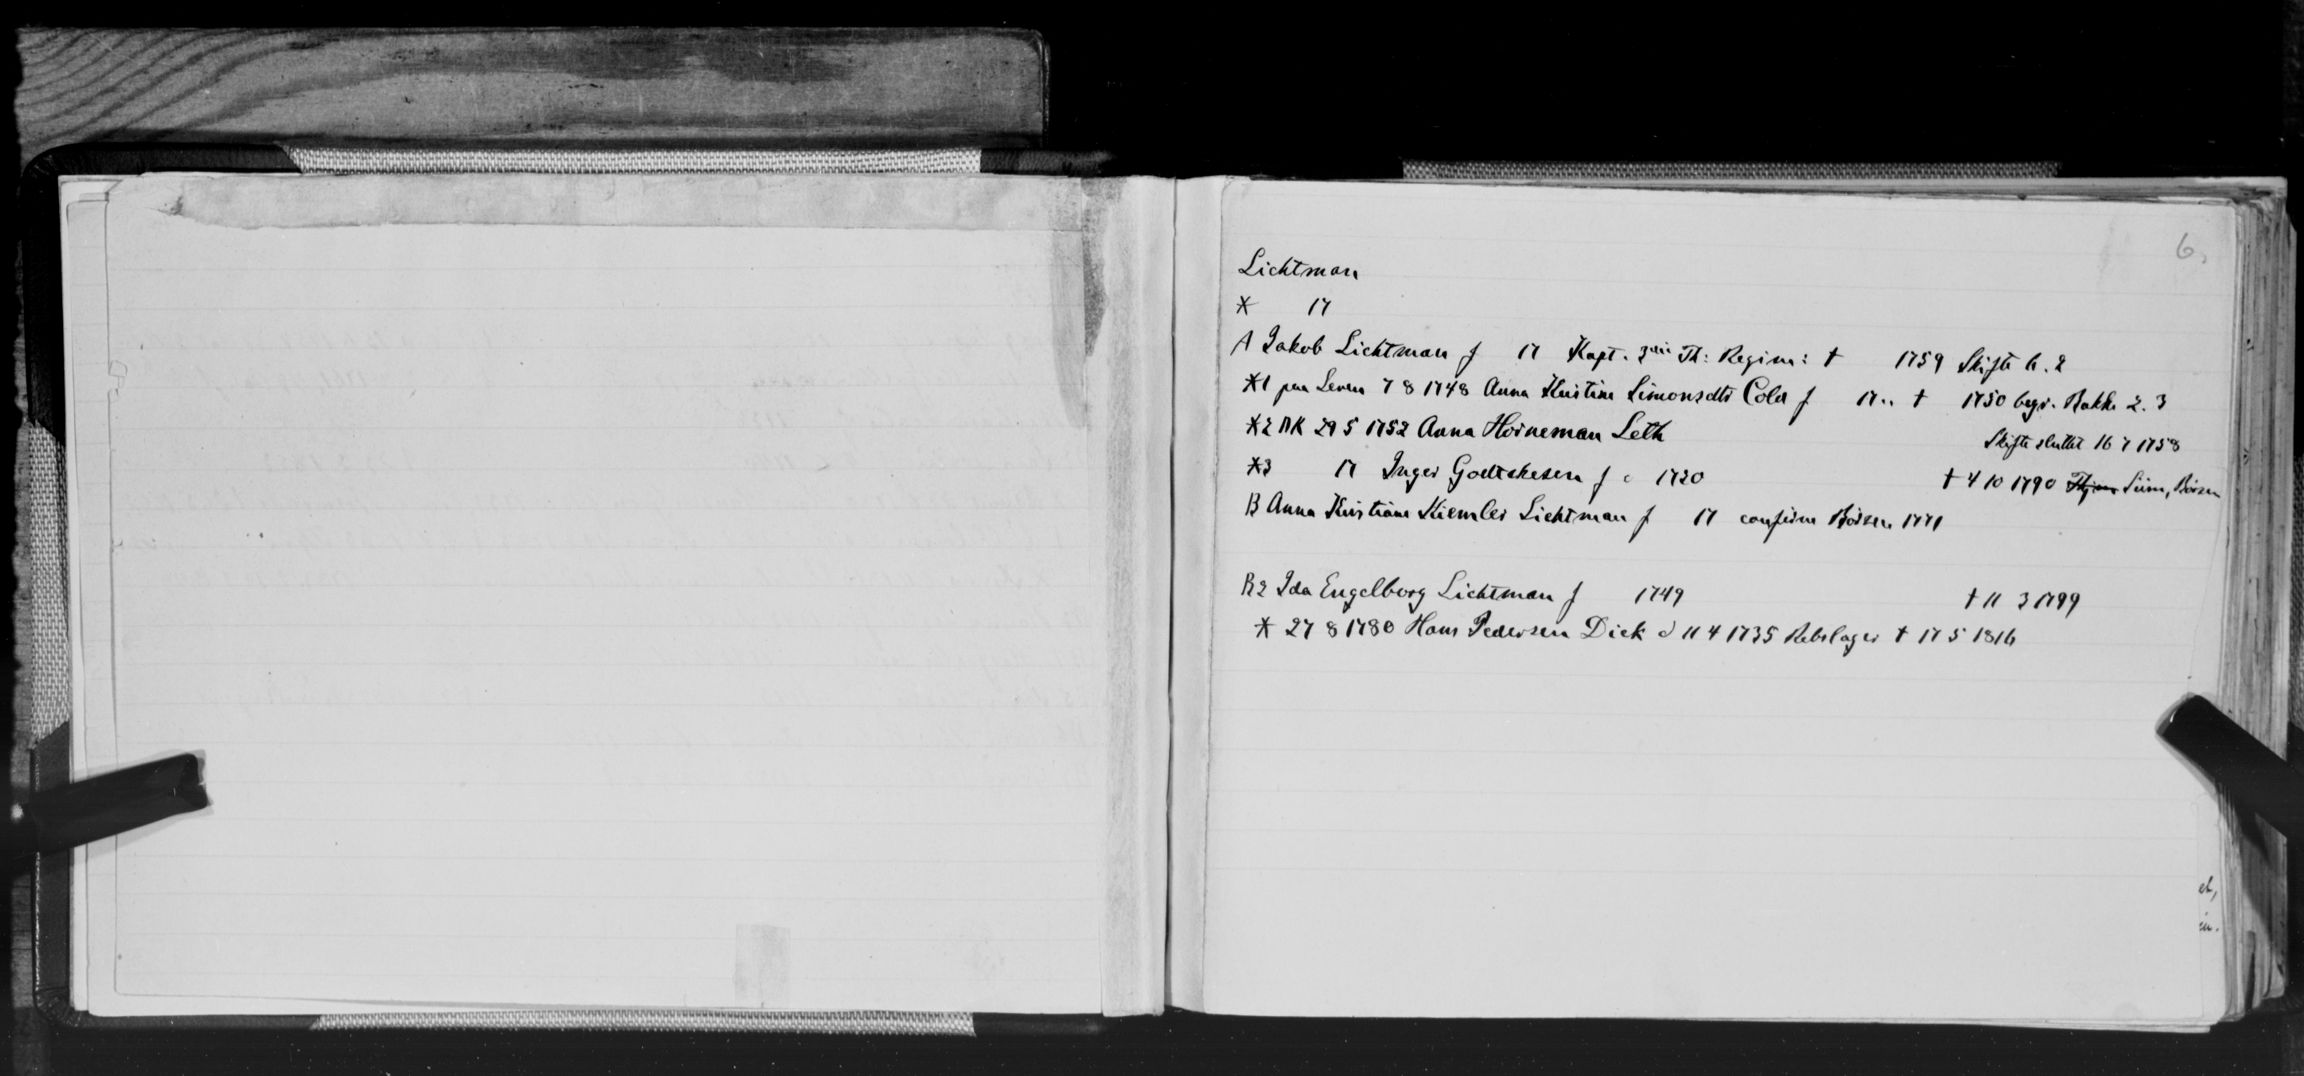 6.
Lichtman
* 17
A Jakob Lichtman f 17 Kapt. 3die Th: Regim: † 1759 Skifte 6.2
*1 paa Leren 7 8 1748 Anna Kristine Simonsdtr Cold f 17.. † 1750 begr. Bakke 2.3
*2 DK 29 5 1752 Anna Horneman Leth Skifte sluttet 16 7 1758
*3 17 Inger Godtskesen f c 1720 † 4 10 1790 Siim, Børsen
B Anna Kristiane Kiemler Lichtman f 17 confirm Børsen 1771
B2 Ida Engelborg Lichtman f 1749 † 11 3 1799
* 27 8 1780 Hans Pedersen Dick d 11 4 1735 Rebslager † 17 5 1816